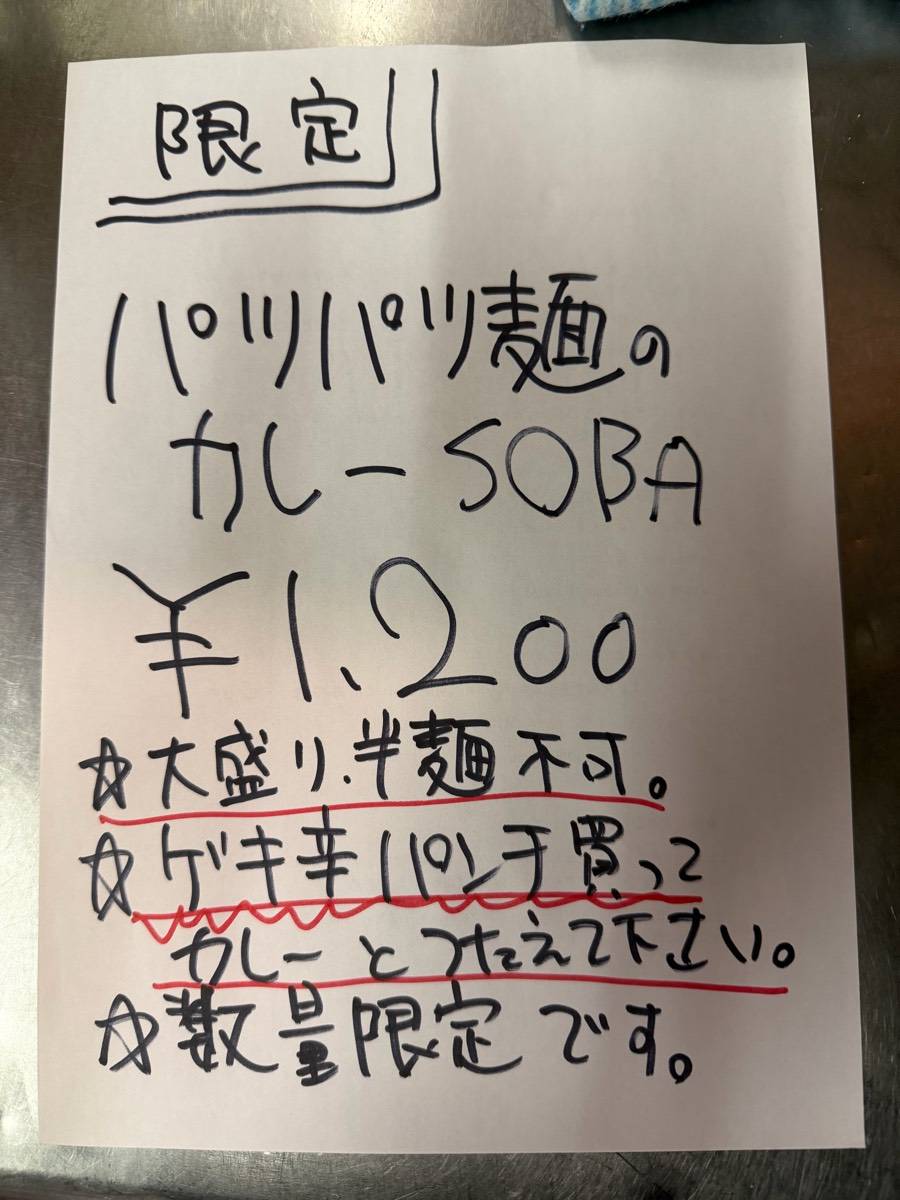 限定
パツパツ麺の
カレーSOBA
¥1,200
☆大盛り、半麺不可。
☆ゲキ辛パンチ買って
カレーとつたえて下さい。
☆数量限定です。